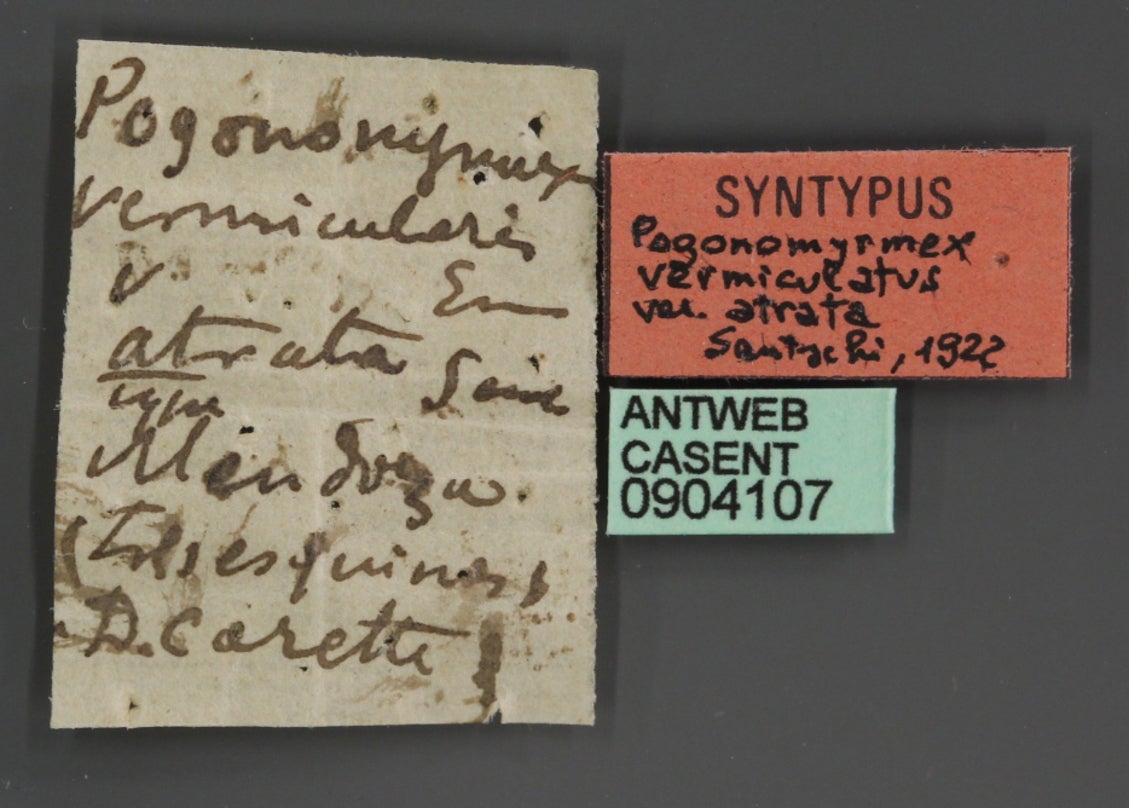 Pogonomyrmex
vermicularis
v. Em
atrata
type Sant
Mendoza
(tres esquinas)
D. Carette
SYNTYPUS
Pogonomyrmex
vermiculatus
var. atrata
Santschi, 1922
ANTWEB
CASENT
0904107